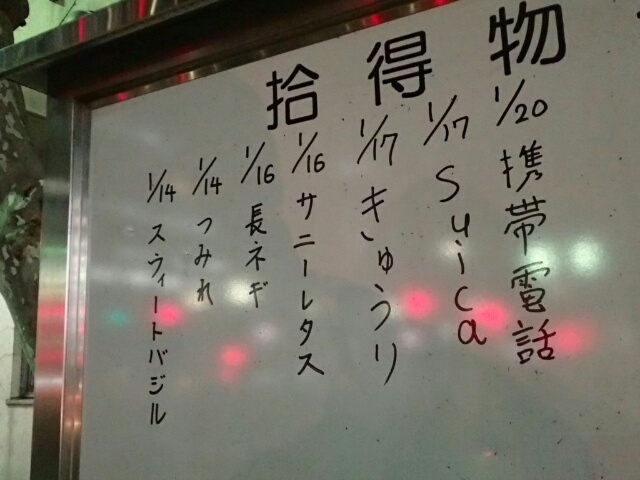 拾得物
1/20 携帯電話
1/17 Suica
1/17 きゅうり
1/16 サニーレタス
1/16 長ネギ
1/14 つみれ
1/14 スウィートバジル